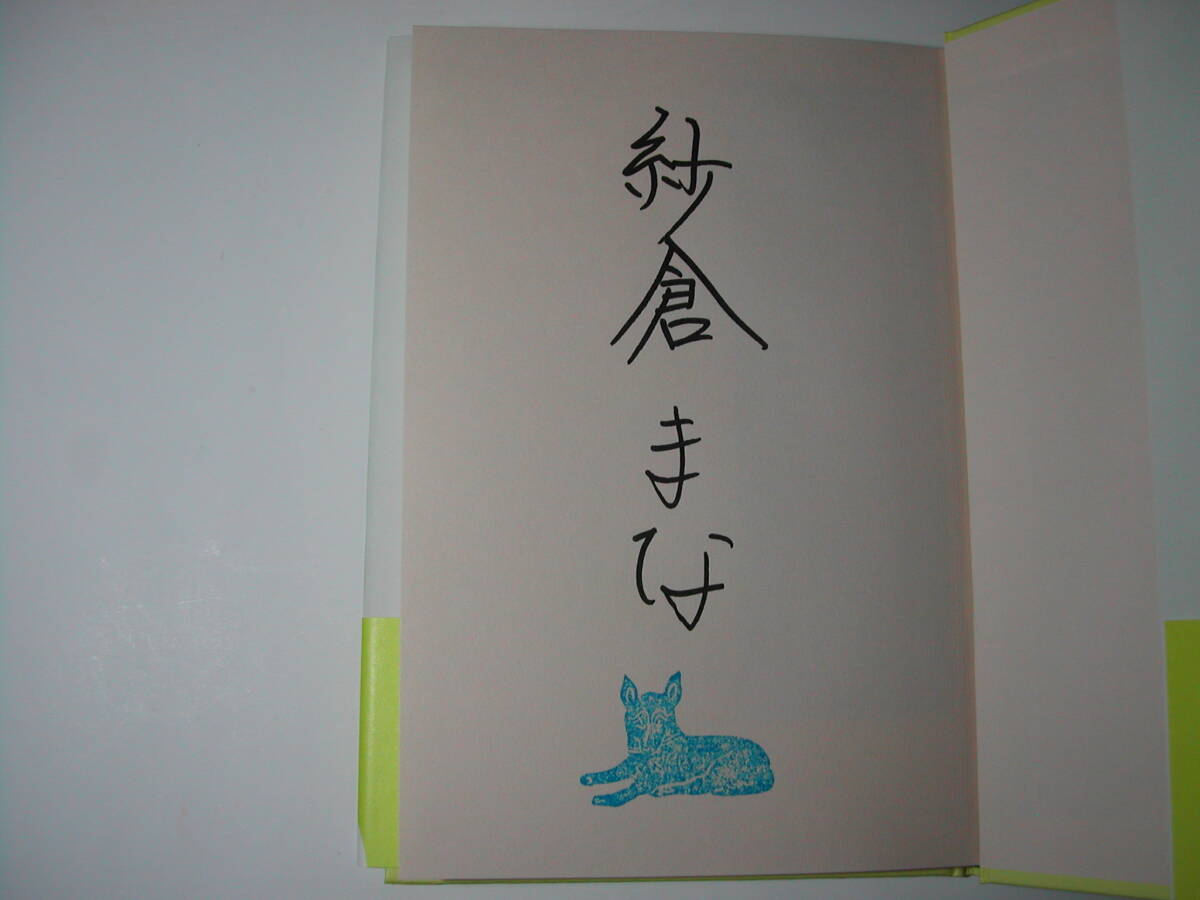 紗倉まな